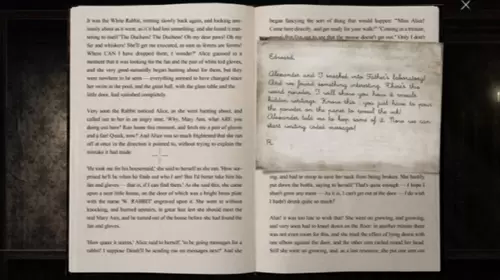 It was the White Rabbit, trotting slowly back again, and looking anx-
iously about as it went, as if it had lost something; and she heard it mut-
tering to itself 'The Duchess! The Duchess! Oh my dear paws! Oh my
fur and whiskers! She'll get me executed, as sure as ferrets are ferrets!
Where CAN I have dropped them, I wonder?' Alice guessed in a
moment that it was looking for the fan and the pair of white kid gloves,
and she very good-naturedly began hunting about for them, but they
were nowhere to be seen — everything seemed to have changed since
her swim in the pool, and the great hall, with the glass table and the
little door, had vanished completely.
Very soon the Rabbit noticed Alice, as she went hunting about, and
called out to her in an angry tone, 'Why, Mary Ann, what ARE you
doing out here? Run home this moment, and fetch me a pair of gloves
and a fan! Quick, now!' And Alice was so much frightened that she ran
off at once in the direction it pointed to, without trying to explain the
mistake it had made.
'He took me for his housemaid,' she said to herself as she ran. 'How sur-
prised he'll be when he finds out who I am! But I'd better take him his
fan and gloves — that is, if I can find them.' As she said this, she came
upon a neat little house, on the door of which was a bright brass plate
with the name 'W. RABBIT' engraved upon it. She went in without
knocking, and hurried upstairs, in great fear lest she should meet the
real Mary Ann, and be turned out of the house before she had found the
fan and gloves.
'How queer it seems,' Alice said to herself, 'to be going messages for a
rabbit! I suppose Dinah'll be sending me on messages next!' And she
began fancying the sort of thing that would happen: '"Miss Alice!
Come here directly, and get ready for your walk!" "Coming in a minute,
Edward,
Alexander and I sneaked into Father's laboratory!
And we found something interesting. There's this
weird powder. I will show you how it reveals
hidden writings. Know this: you just have to pour
the powder on the paper to reveal the ink!
Alexander told me to keep some of it. Now we can
start writing coded messages!
R.
ing, and had to stoop to save her neck from being broken. She hastily
put down the bottle, saying to herself 'That's quite enough — I hope I
shan't grow any more — As it is, I can't get out at the door — I do wish
I hadn't drunk quite so much!'
Alas! it was too late to wish that! She went on growing, and growing,
and very soon had to kneel down on the floor: in another minute there
was not even room for this, and she tried the effect of lying down with
one elbow against the door, and the other arm curled round her head.
Still she went on growing, and, as a last resource, she put one arm out